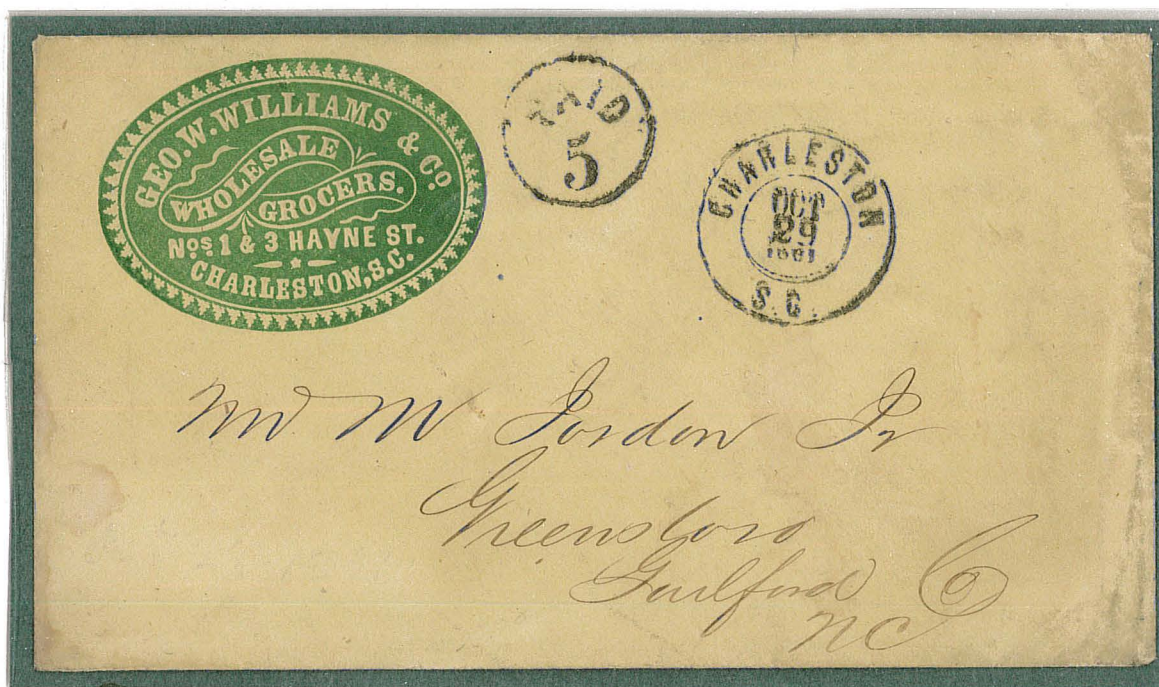 GEO. W. WILLIAMS & Co
WHOLESALE
GROCERS.
Nos. 1 & 3 HAYNE ST.
CHARLESTON, S.C.
PAID
5
CHARLESTON
OCT
29
1861
S.C.
M Jordon Jr
Greensboro
Guilford Co
NC